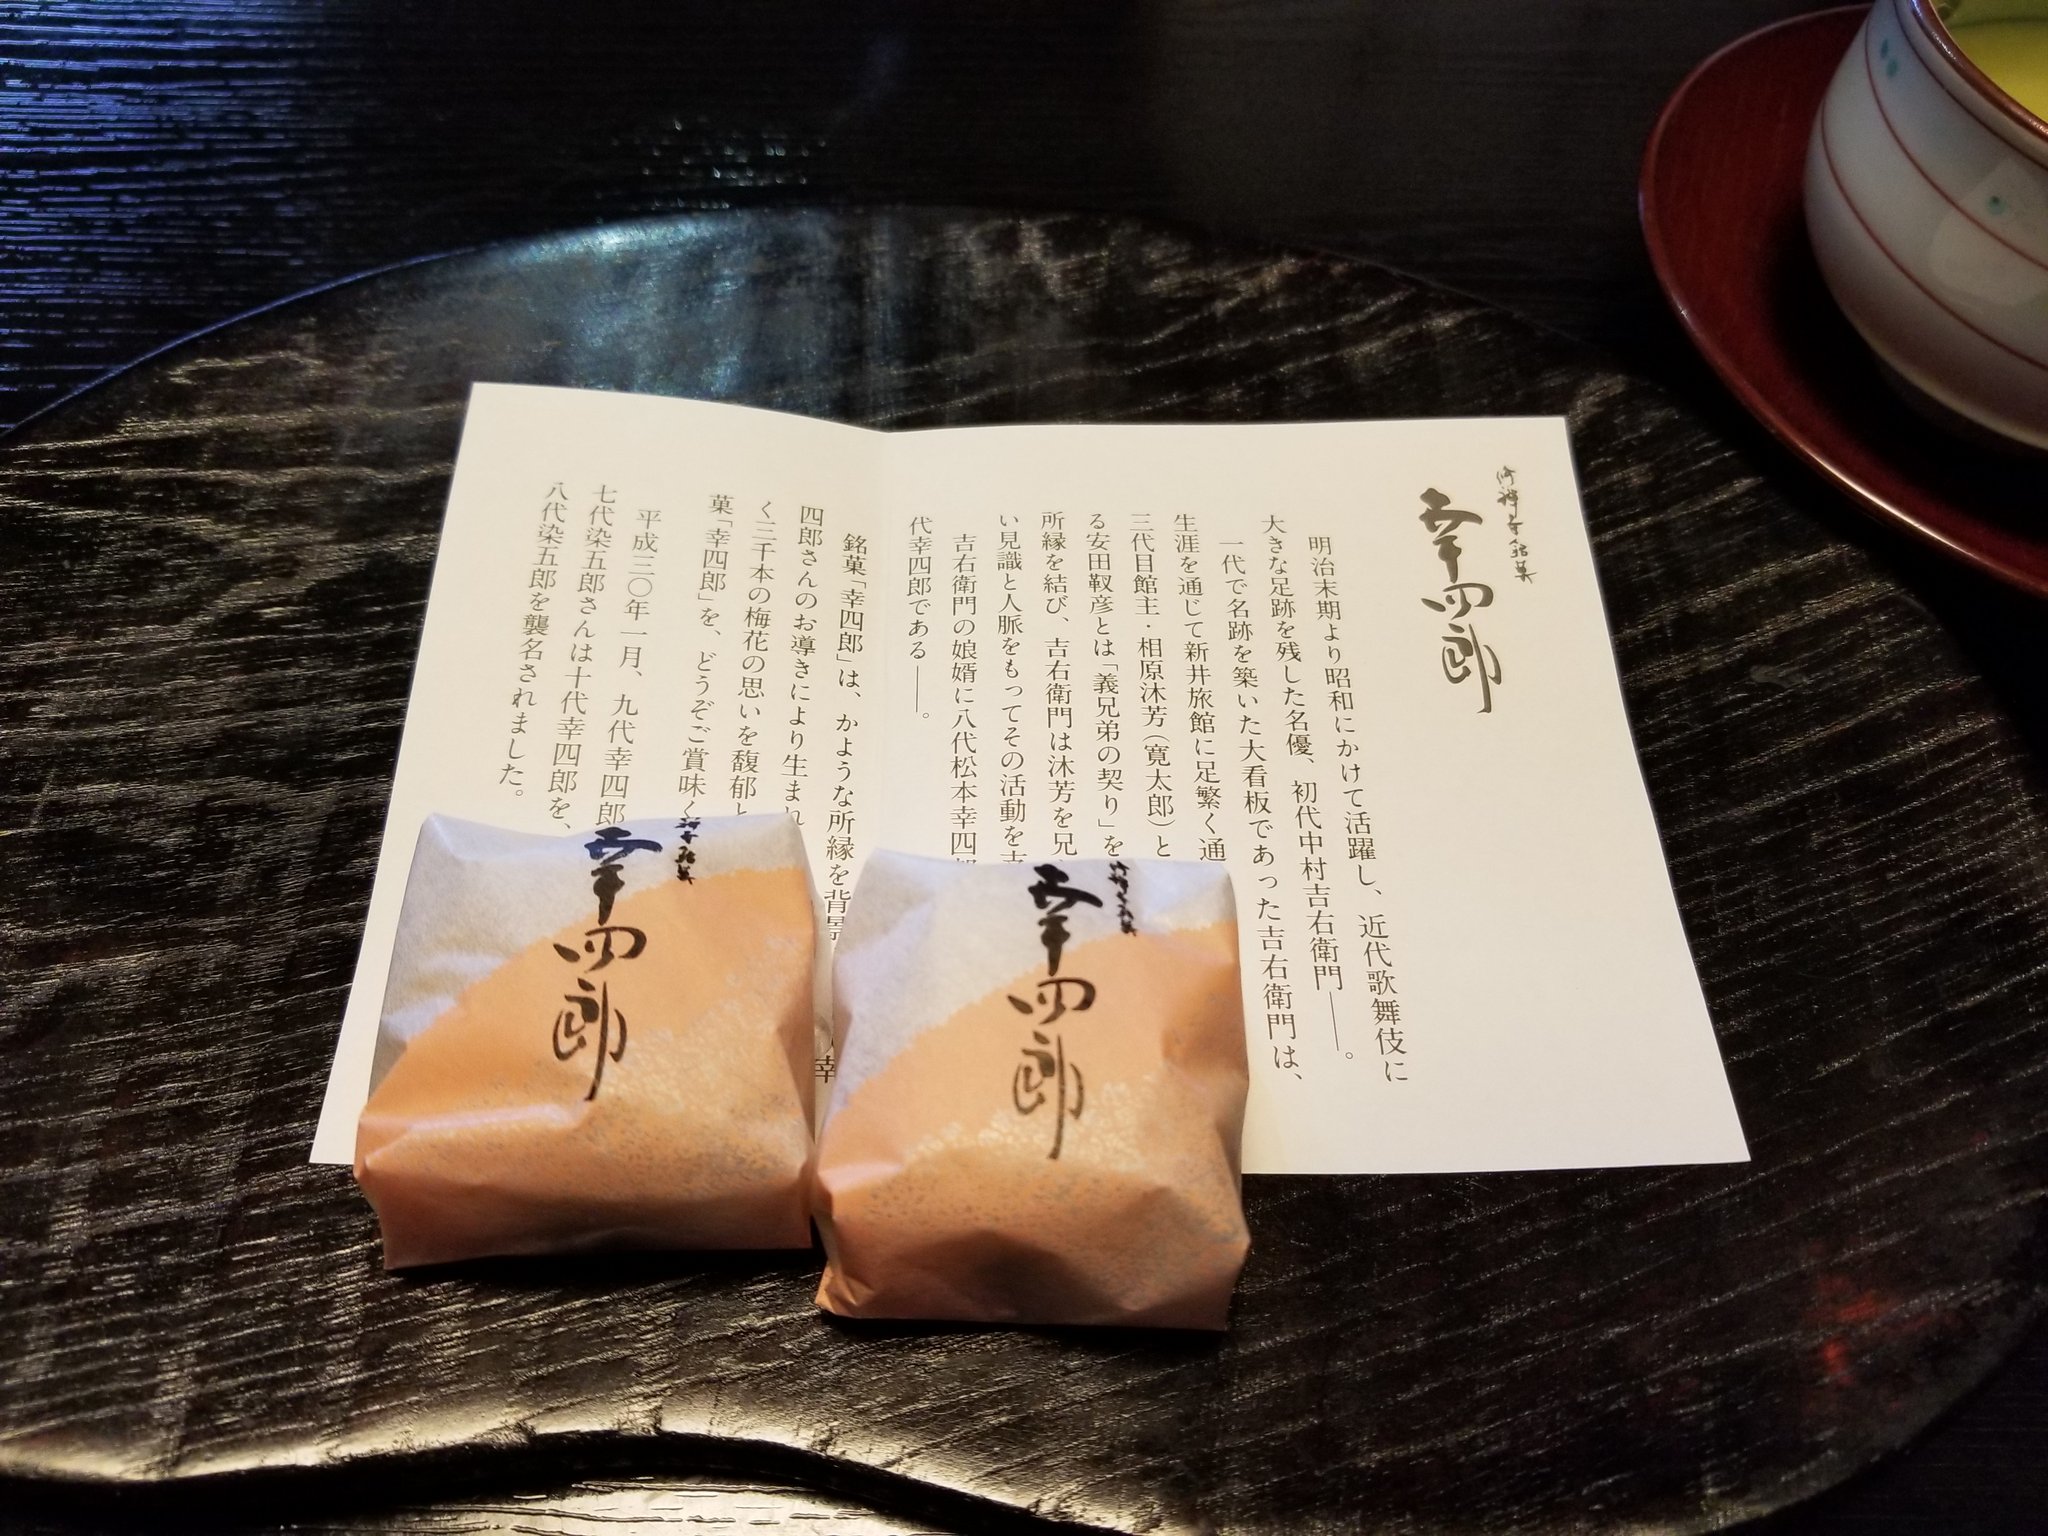 修禅寺銘菓
幸四郎
明治末期より昭和にかけて活躍し、近代歌舞伎に
大きな足跡を残した名優、初代中村吉右衛門――。
一代で名跡を築いた大看板であった吉右衛門は、
生涯を通じて新井旅館に足繁く通
三代目館主・相原沐芳(寛太郎)と
る安田靫彦とは「義兄弟の契り」を
所縁を結び、吉右衛門は沐芳を兄
い見識と人脈をもってその活動を支
吉右衛門の娘婿に八代松本幸四郎
代幸四郎である――。
銘菓「幸四郎」は、かような所縁を背景
幸
四郎さんのお導きにより生まれ
く三千本の梅花の思いを馥郁と
菓「幸四郎」を、どうぞご賞味く
平成三〇年一月、九代幸四郎
七代染五郎さんは十代幸四郎を、
八代染五郎を襲名されました。
幸四郎
修禅寺銘菓
幸四郎